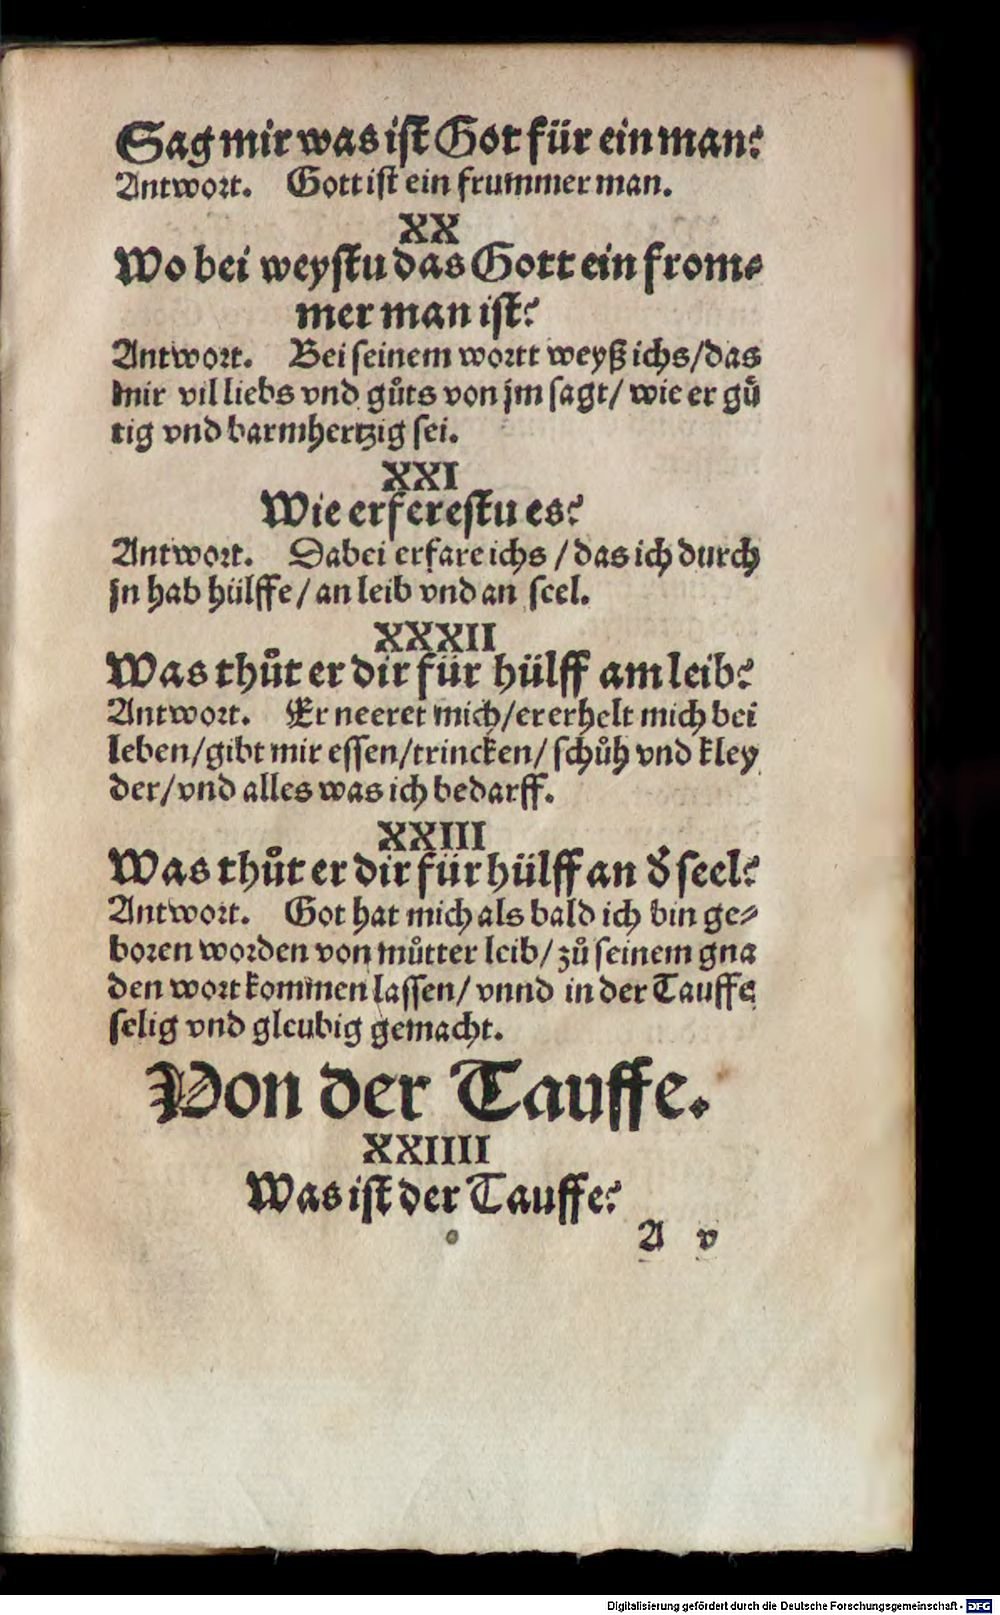 Sag mir was ist Got für ein man?
Antwort. Gott ist ein frummer man.
XX
Wo bei weystu das Gott ein from⸗
mer man ist?
Antwort. Bei seinem wortt weyß ichs/das
mir vil liebs vnd gůts von jm sagt/ wie er gü
tig vnd barmhertzig sei.
XXI
Wie erferestu es?
Antwort. Dabei erfare ichs /das ich durch
jn hab hülffe/an leib vnd an seel.
XXXII
Was thůt er dir für hülff am leib?
Antwort. Er neeret mich/er erhelt mich bei
leben/gibt mir essen/trincken/ schůh vnd kley
der/vnd alles was ich bedarff.
XXIII
Was thůt er dir für hülff an d̕ seel?
Antwort. Got hat mich als bald ich bin ge⸗
boren worden von můtter leib/ zů seinem gna
den wort kommen lassen/ vnnd in der Tauffe
selig vnd gleubig gemacht.
Von der Tauffe.
XXIIII
Was ist der Tauffe?
A v
Digitalisierung gefördert durch die Deutsche Forschungsgemeinschaft - DFG